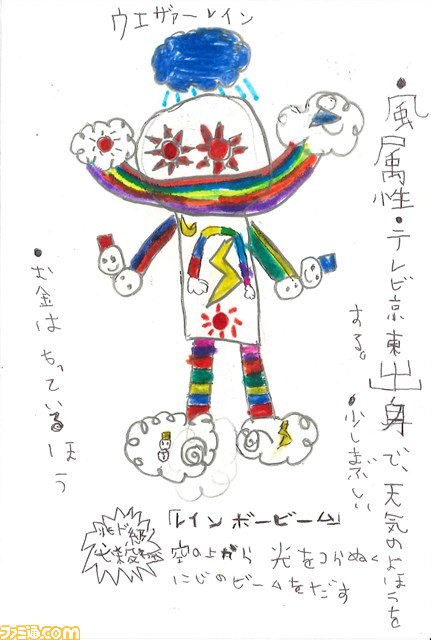 ウエザァーレイン
・風属性・テレビ京東出身で、天気のよほうを
する。
・少しまぶしい
・お金はもっているほう
「レインボービーム」
空の上から光をつらぬく
にじのビームをだす
ファミ通.com